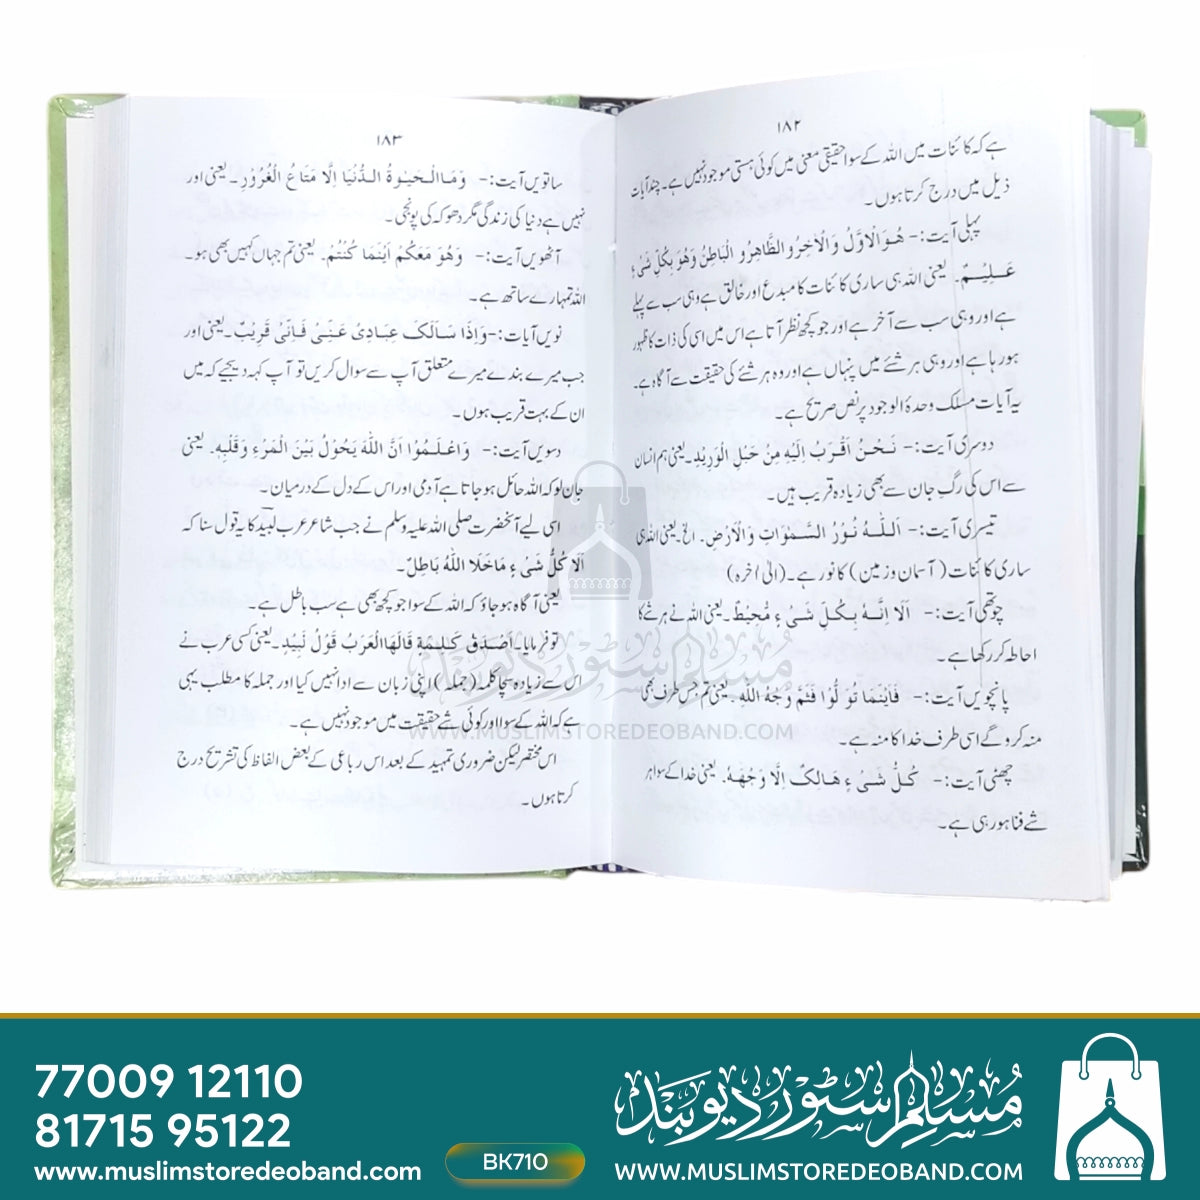 ۱۸۲
ہے کہ کائنات میں اللہ کے سوا حقیقی معنی میں کوئی ہستی موجود نہیں ہے۔ چند آیات
ذیل میں درج کرتا ہوں۔
پہلی آیت:- هُوَ الْاَوَّلُ وَ الْاٰخِرُ و الظَّاهِرُ و الْبَاطِنُ وَهُوَ بِكُلِّ شَیْءٍ
عَلِيْمٌ۔ یعنی اللہ ہی ساری کائنات کا مبدع اور خالق ہے وہی سب سے پہلے
ہے اور وہی سب سے آخر ہے اور جو کچھ نظر آتا ہے اس میں اسی کی ذات کا ظہور
ہو رہا ہے اور وہی ہر شئے میں پنہاں ہے اور وہ ہر شئے کی حقیقت سے آگاہ ہے۔
یہ آیات مسلک وحدۃ الوجود پر نص صریح ہے۔
دوسری آیت:- نَحْنُ اَقْرَبُ اِلَيْهِ مِنْ حَبْلِ الْوَرِيْدِ۔ یعنی ہم انسان
سے اس کی رگ جان سے بھی زیادہ قریب ہیں۔
تیسری آیت:- اَللّٰهُ نُوْرُ السَّمٰوَاتِ وَالْاَرْضِ۔ الخ۔ یعنی اللہ ہی
ساری کائنات (آسمان و زمین) کا نور ہے۔ (الیٰ اخرہ)
چوتھی آیت:- اَلَا اِنَّهٗ بِكُلِّ شَیْءٍ مُّحِيْطٌ۔ یعنی اللہ نے ہر شے کا
احاطہ کر رکھا ہے۔
پانچویں آیت:- فَاَيْنَمَا تُوَلُّوْا فَثَمَّ وَجْهُ اللّٰهِ۔ یعنی تم جس طرف بھی
منہ کرو گے اسی طرف خدا کا منہ ہے۔
چھٹی آیت:- كُلُّ شَیْءٍ هَالِكٌ اِلَّا وَجْهَهٗ۔ یعنی خدا کے سوا ہر
شے فنا ہو رہی ہے۔
۱۸۳
ساتویں آیت:- وَمَا الْحَيٰوةُ الدُّنْيَا اِلَّا مَتَاعُ الْغُرُوْرِ۔ یعنی اور
نہیں ہے دنیا کی زندگی مگر دھوکہ کی پونجی۔
آٹھویں آیت:- وَهُوَ مَعَكُمْ اَيْنَمَا كُنْتُمْ۔ یعنی تم جہاں کہیں بھی ہو۔
اللہ تمہارے ساتھ ہے۔
نویں آیات:- وَاِذَا سَالَكَ عِبَادِیْ عَنِّیْ فَاِنِّیْ قَرِيْبٌ۔ یعنی اور
جب میرے بندے میرے متعلق آپ سے سوال کریں تو آپ کہہ دیجیے کہ میں
ان کے بہت قریب ہوں۔
دسویں آیت:- وَاعْلَمُوْا اَنَّ اللّٰهَ يَحُوْلُ بَيْنَ الْمَرْءِ وَقَلْبِهٖ۔ یعنی
جان لو کہ اللہ حائل ہو جاتا ہے آدمی اور اس کے دل کے درمیان۔
اسی لیے آنحضرت صلی اللہ علیہ وسلم نے جب شاعر عرب لبید کا یہ قول سنا کہ
اَلَا كُلُّ شَیْءٍ مَا خَلَا اللّٰهَ بَاطِلٌ۔
یعنی آگاہ ہو جاؤ کہ اللہ کے سوا جو کچھ بھی ہے سب باطل ہے۔
تو فرمایا۔ اَصْدَقُ كَلِمَةٍ قَالَهَا الْعَرَبُ قَوْلُ لَبِيْدٍ۔ یعنی کسی عرب نے
اس کے زیادہ سچا کلمہ (جملہ) اپنی زبان سے ادا نہیں کیا اور جملہ کا مطلب یہی
ہے کہ اللہ کے سوا اور کوئی شے حقیقت میں موجود نہیں ہے۔
اس مختصر لیکن ضروری تمہید کے بعد اس رباعی کے بعض الفاظ کی تشریح درج
کرتا ہوں۔
مسلم سٹور دیوبند
WWW.MUSLIMSTOREDEOBAND.COM
77009 12110
81715 95122
www.muslimstoredeoband.com
BK710
مسلم سٹور دیوبند
WWW.MUSLIMSTOREDEOBAND.COM